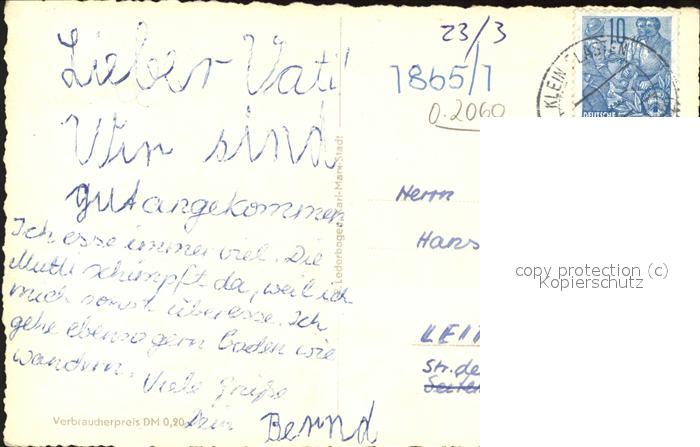 Lieber Vati!
Wir sind
gut angekommen
Ich esse immer viel. Die
Mutti schimpft da, weil ich
mich sonst überesse. Ich
gehe ebenso gern baden wie
wandern.
Viele Grüße
Dein Bernd
Verbraucherpreis DM 0,20
Lederbogen, Karl-Marx-Stadt
23/3
1865/1
0.2060
10
DEUTSCHE
KLEIN
Herrn
Hans
Str. de
Seiten
copy protection (c)
Kopierschutz